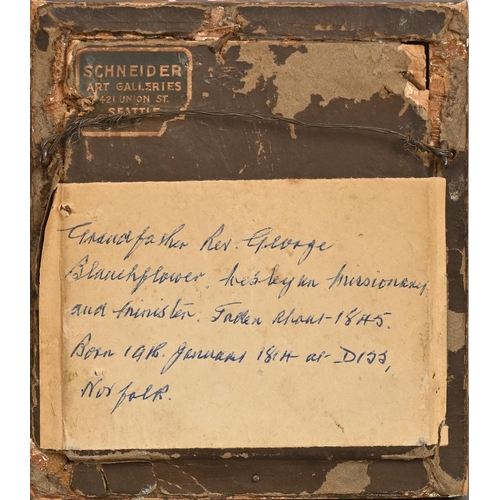 SCHNEIDER
ART GALLERIES
421 UNION ST.
SEATTLE
Grandfather Rev. George
Blanchflower, Wesleyan Missionary
and Minister. Taken about 1845.
Born 19th. January 1814 at DISS,
Norfolk.